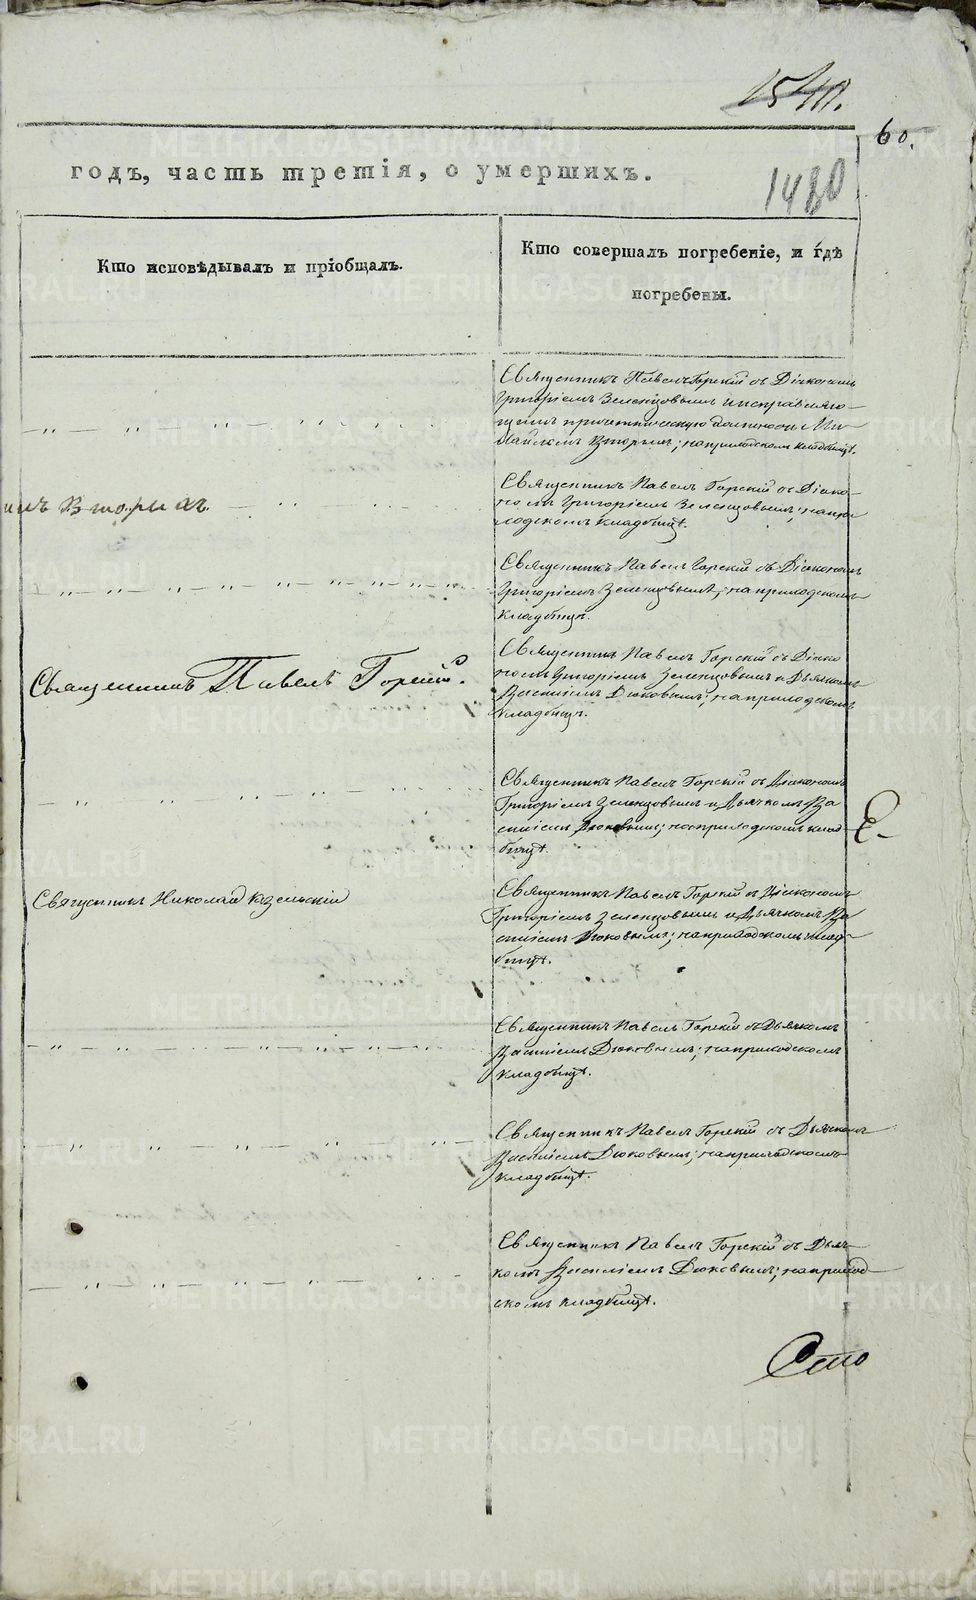 60.
1480
годъ, часть третія, о умершихъ.
Кто исповѣдывалъ и пріобщалъ.
Кто совершалъ погребеніе, и гдѣ
погребены.
Священникъ Павелъ Горскій съ Діакономъ
Григоріемъ Зеленцовымъ и исправляю-
щимъ причетническую должность Ми-
хайломъ Вторымъ; на приходскомъ кладбищѣ.
Вторыхъ.
Священникъ Павелъ Горскій съ Діако-
номъ Григоріемъ Зеленцовымъ; на при-
ходскомъ кладбищѣ.
Священникъ Павелъ Горскій съ Діакономъ
Григоріемъ Зеленцовымъ; на приходскомъ
кладбищѣ.
Священникъ Павелъ Горскій.
Священникъ Павелъ Горскій съ Діако
номъ Григоріемъ Зеленцовымъ и Дьячкомъ
Василіемъ Дюковымъ; на приходскомъ
кладбищѣ.
Священникъ Павелъ Горскій съ Діакономъ
Григоріемъ Зеленцовымъ и Дьячкомъ Ва
силіемъ Дюковымъ; на приходскомъ клад-
бищѣ.
Священникъ Николай
Священникъ Павелъ Горскій съ Діакономъ
Григоріемъ Зеленцовымъ и Дьячкомъ Ва
силіемъ Дюковымъ; на приходскомъ клад-
бищѣ.
Священникъ Павелъ Горскій съ Дьячкомъ
Василіемъ Дюковымъ; на приходскомъ
кладбищѣ.
Священникъ Павелъ Горскій съ Дьячкомъ
Василіемъ Дюковымъ; на приходскомъ
кладбищѣ.
Священникъ Павелъ Горскій съ Дьяч-
комъ Василіемъ Дюковымъ; на приход-
скомъ кладбищѣ.
METRIKI.GASO-URAL.RU